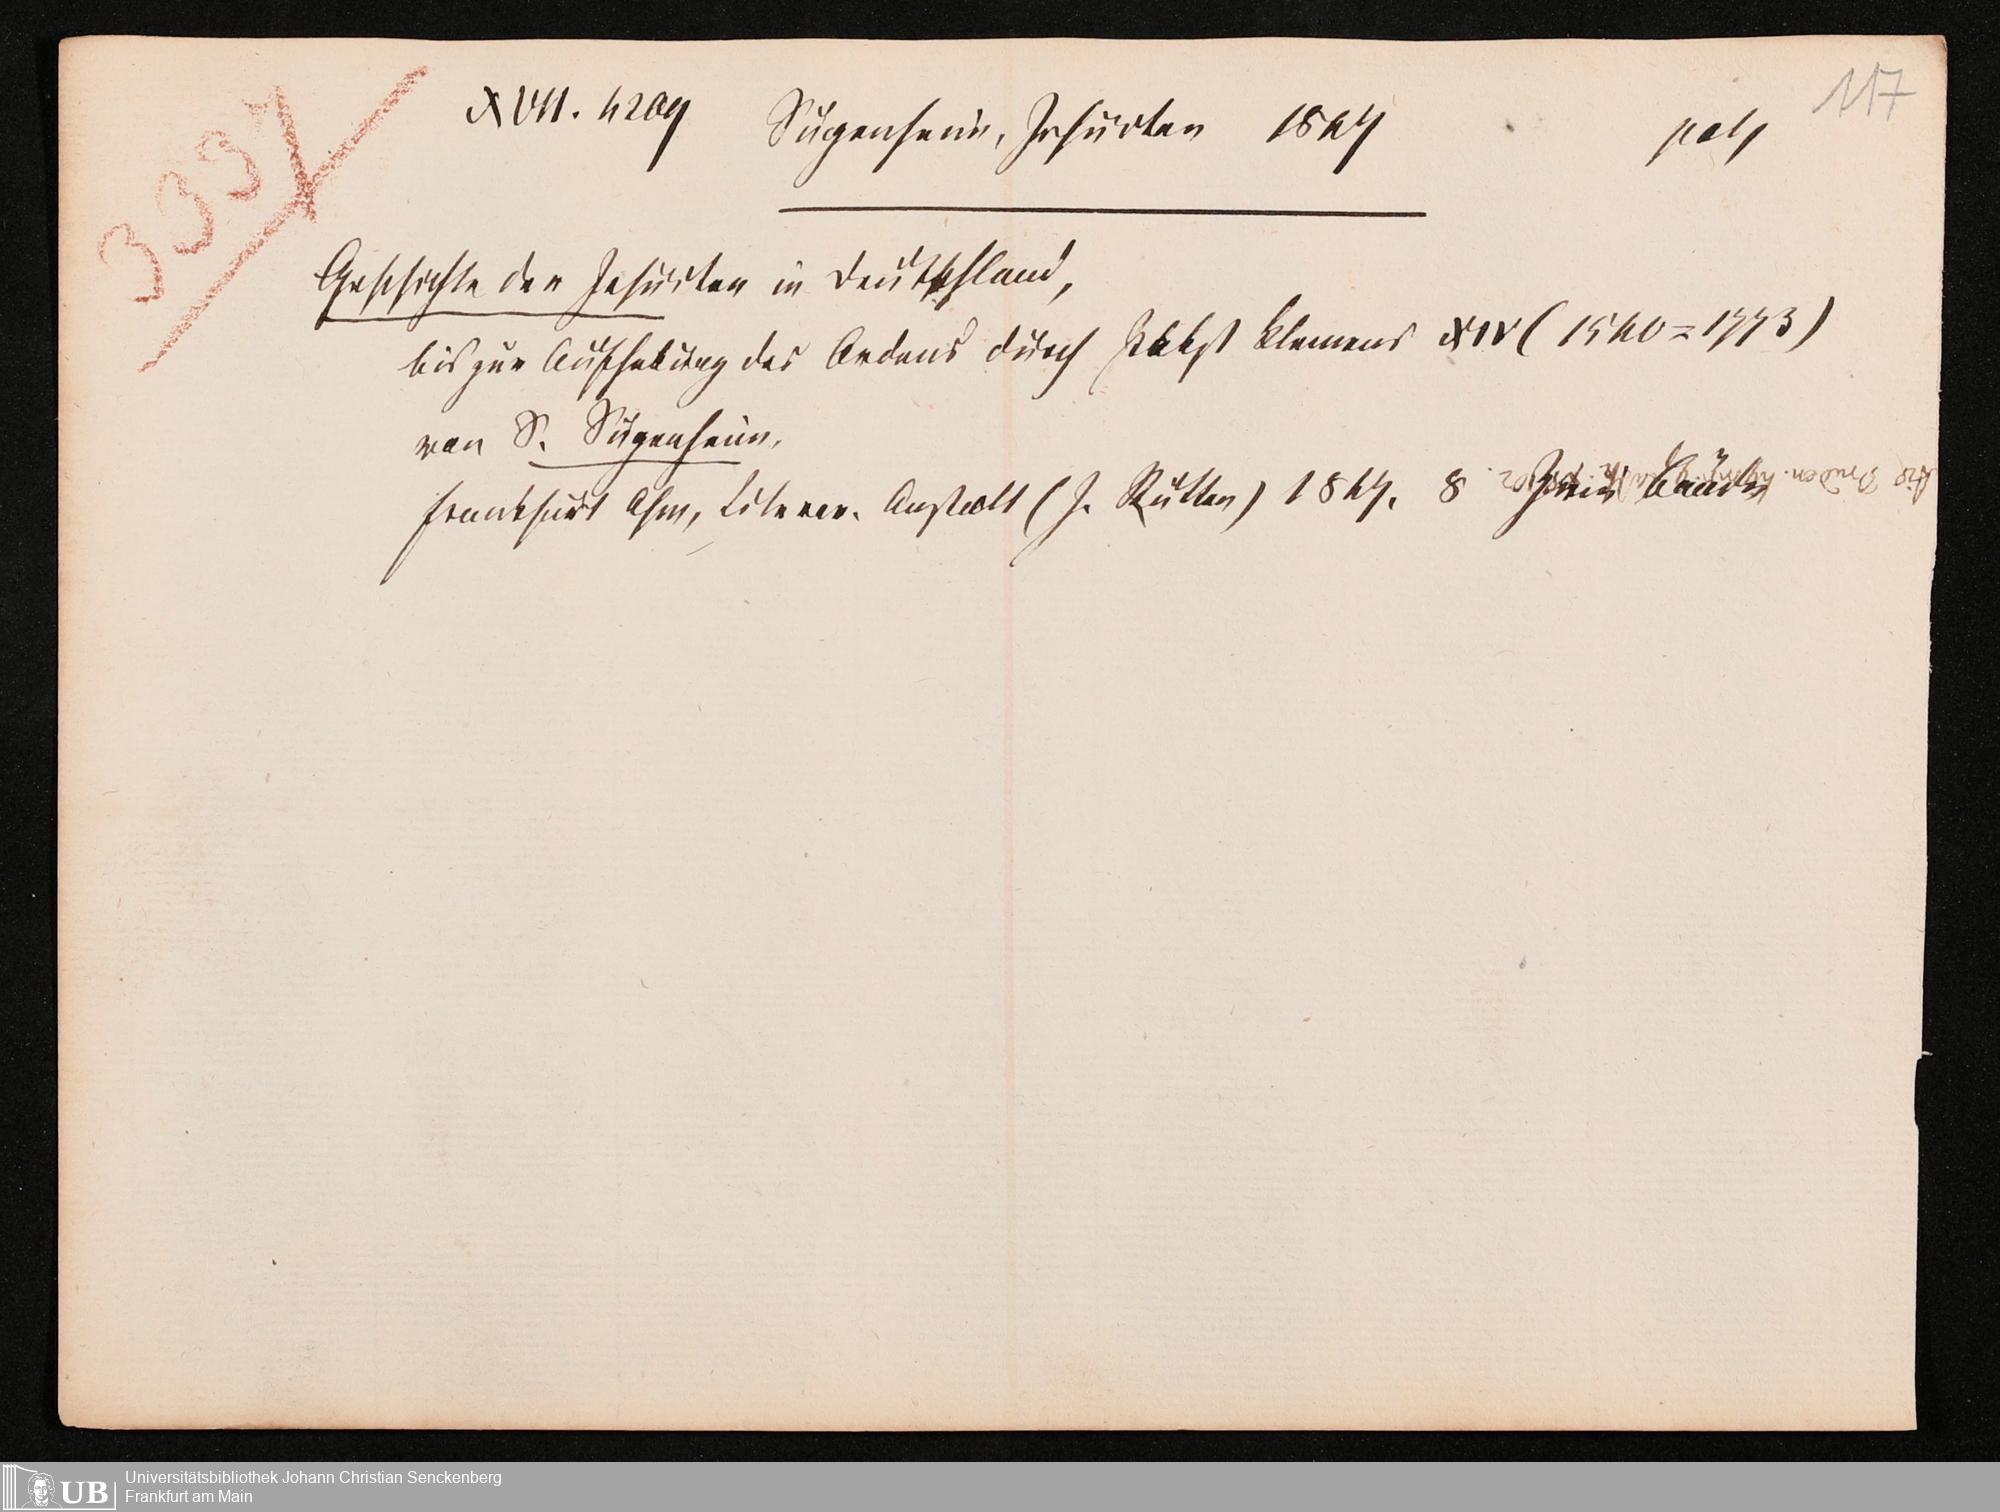 117
3337
XVII. 4209 Sugenheim, Jesuiten 1847
Geschichte der Jesuiten in Deutschland,
bis zur Aufhebung des Ordens durch Pabst Klemens XIV (1540=1773)
von S. Sugenheim,
Frankfurt a/m, Literar. Anstalt (J. Rütten) 1847. 8 Zwei Bände
UB
Universitätsbibliothek Johann Christian Senckenberg
Frankfurt am Main